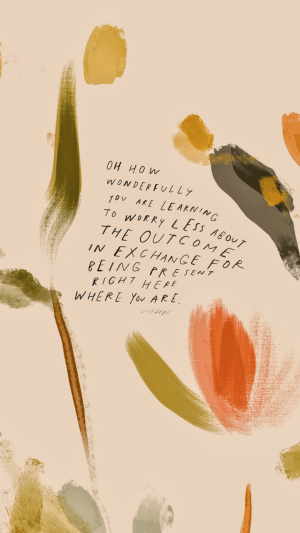 OH HOW
WONDERFULLY
YOU ARE LEARNING
TO WORRY LESS ABOUT
THE OUTCOME
IN EXCHANGE FOR
BEING PRESENT
RIGHT HERE
WHERE YOU ARE.